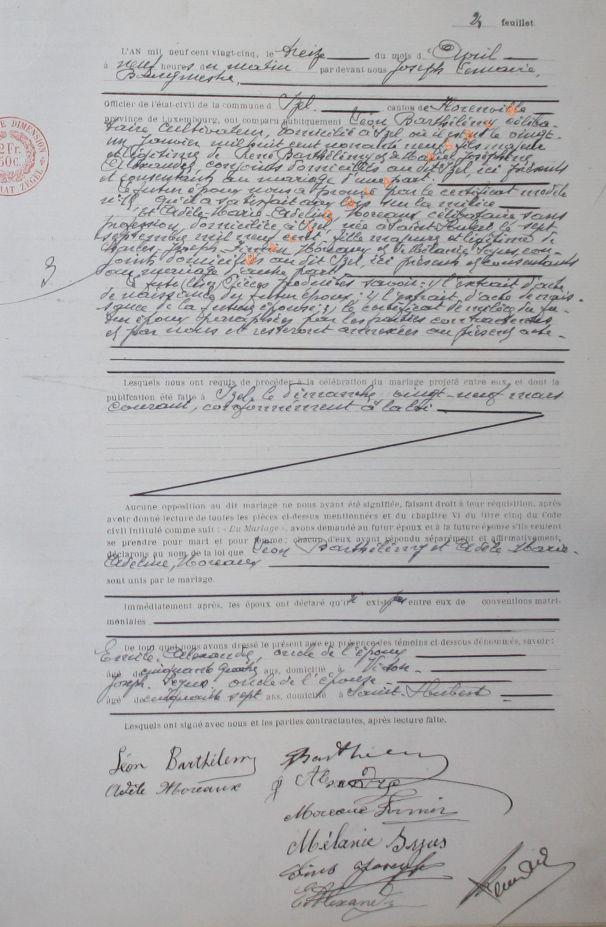 2 feuillet.
L'AN mil neuf cent vingt-cinq, le treize du mois d'Avril
à neuf heures du matin par devant nous Joseph
Bourgmestre,
Officier de l'état-civil de la commune d'Izel, canton de Florenville
province de Luxembourg, ont comparu publiquement Léon Barthélemy céliba-
taire, cultivateur, domicilié à Izel où il est né le vingt-
un Janvier mil huit cent nonante neuf, fils majeur
et légitime de René Barthélemy & de Marie Joséphine
Alexandre, conjoints domiciliés au dit Izel, ici présents
et consentants au mariage d'une part.
Le futur époux nous a prouvé par le certificat modèle
n° 18 qu'il a satisfait aux sur la milice.
Et Adèle-Marie-Adeline, Moreaux célibataire sans
profession, domiciliée à Izel, née à Saint Hubert le sept
septembre mil neuf cent fille majeure et légitime de
Charles, Joseph, Firmin, Moreaux & de Mélanie con-
joints domiciliés au dit Izel, ici présents & consentants
au mariage d'autre part.
Futur Les Pièces produites savoir: 1) l'extrait d'acte
de naissance du futur époux: 2) l'extrait d'acte de nais-
sance de la future épouse; 3) le certificat de milice du fu-
tur époux paraphées par les parties contractantes
et par nous et resteront annexées au présent acte.
3
Lesquels nous ont requis de procéder à la célébration du mariage projeté entre eux et dont la
publication été faite à Izel, le dimanche vingt-neuf mars
courant, conformément à la loi
Aucune opposition au dit mariage ne nous ayant été signifiée, faisant droit à leur réquisition, après
avoir donné lecture de toutes les pièces ci-dessus mentionnées et du chapitre VI du titre cinq du Code
civil intitulé comme suit : «Du Mariage», avons demandé au futur époux et à la future épouse s'ils veulent
se prendre pour mari et pour femme; chacun d'eux ayant répondu séparément et affirmativement,
déclarons au nom de la loi que Léon Barthélemy et Adèle Marie-
Adeline, Moreaux
sont unis par le mariage.
Immédiatement après, les époux ont déclaré qu'il existe pas entre eux de conventions matri-
moniales
De tout quoi nous avons dressé le présent acte en présence des témoins ci-dessus dénommés, savoir:
Emile Alexandre oncle de l'époux
âgé de cinquante quatre ans, domicilié à Virton
Joseph oncle de l'épouse
âgé de cinquante sept ans, domicilié à Saint-Hubert
Lesquels ont signé avec nous et les parties contractantes, après lecture faite.
Léon Barthélemy
Barthélemy
Adèle Moreaux
Moreaux Firmin
Mélanie
E Alexandre